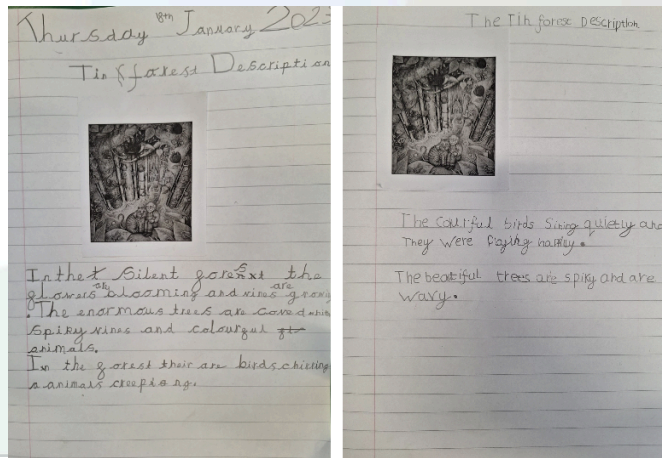 Thursday 18th January 202
Tin forest Description
In the silent forest the
flowers are blooming and vines are growi
. The enormous trees are coverd
spiky vines and colourful
animals.
In the forest their are birds chirring
a animals creepisng.
The Tin forest Description
The Courful birds Sining quietly and
They were
The beatiful trees are spiky and are
wavy.